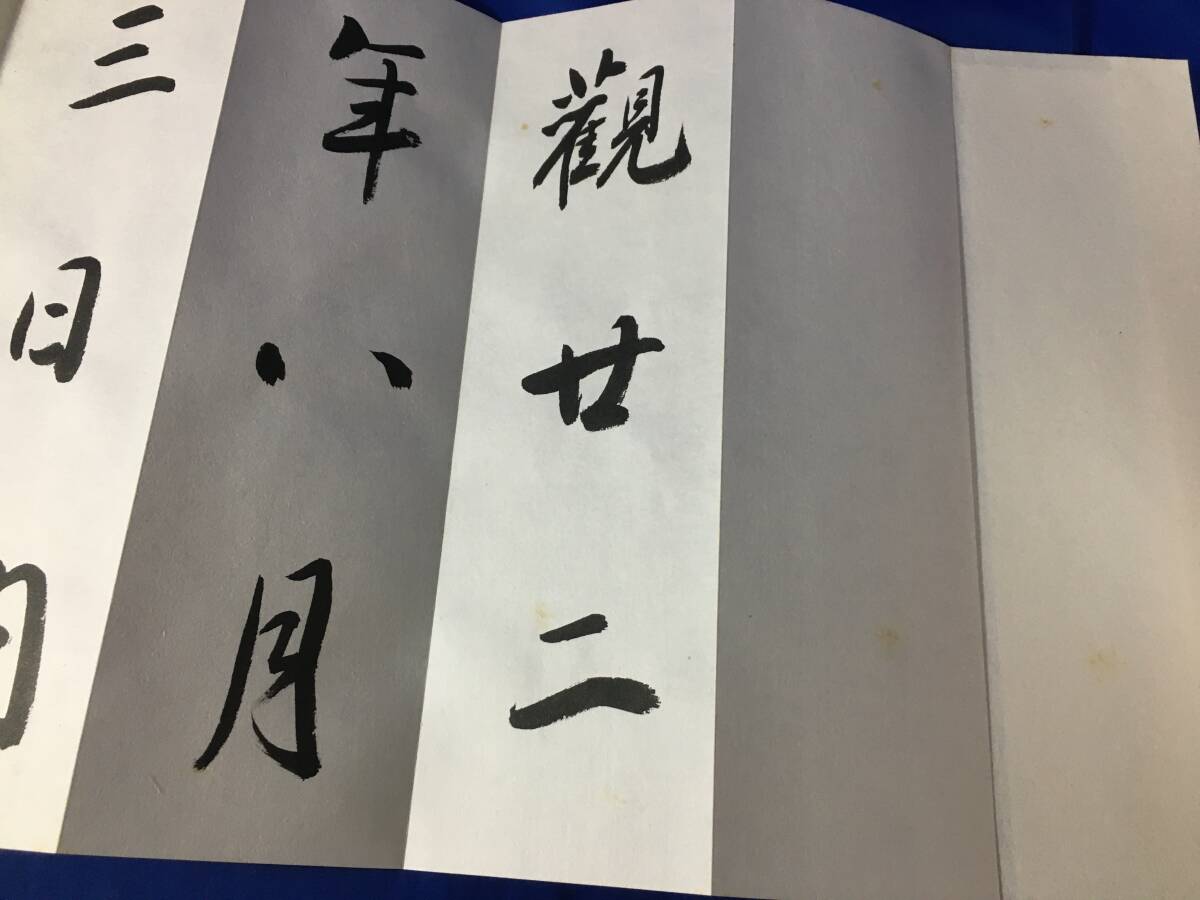 觀廿二
年八月
三日内